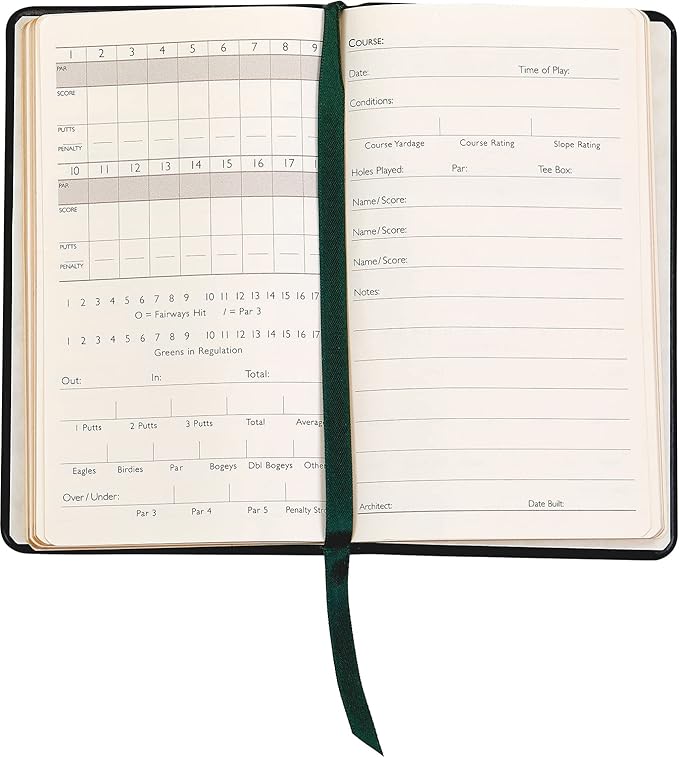 1 2 3 4 5 6 7 8 9
PAR
SCORE
PUTTS
PENALTY
10 11 12 13 14 15 16 17
PAR
SCORE
PUTTS
PENALTY
1 2 3 4 5 6 7 8 9 10 11 12 13 14 15 16 17
O = Fairways Hit / = Par 3
1 2 3 4 5 6 7 8 9 10 11 12 13 14 15 16 17
Greens in Regulation
Out: In: Total:
1 Putts 2 Putts 3 Putts Total
Eagles Birdies Par Bogeys Dbl Bogeys
Over / Under:
Par 3 Par 4 Par 5 Penalty
COURSE:
Date: Time of Play:
Conditions:
Course Yardage Course Rating Slope Rating
Holes Played: Par: Tee Box:
Name/Score:
Name/Score:
Name/Score:
Notes:
Architect: Date Built: